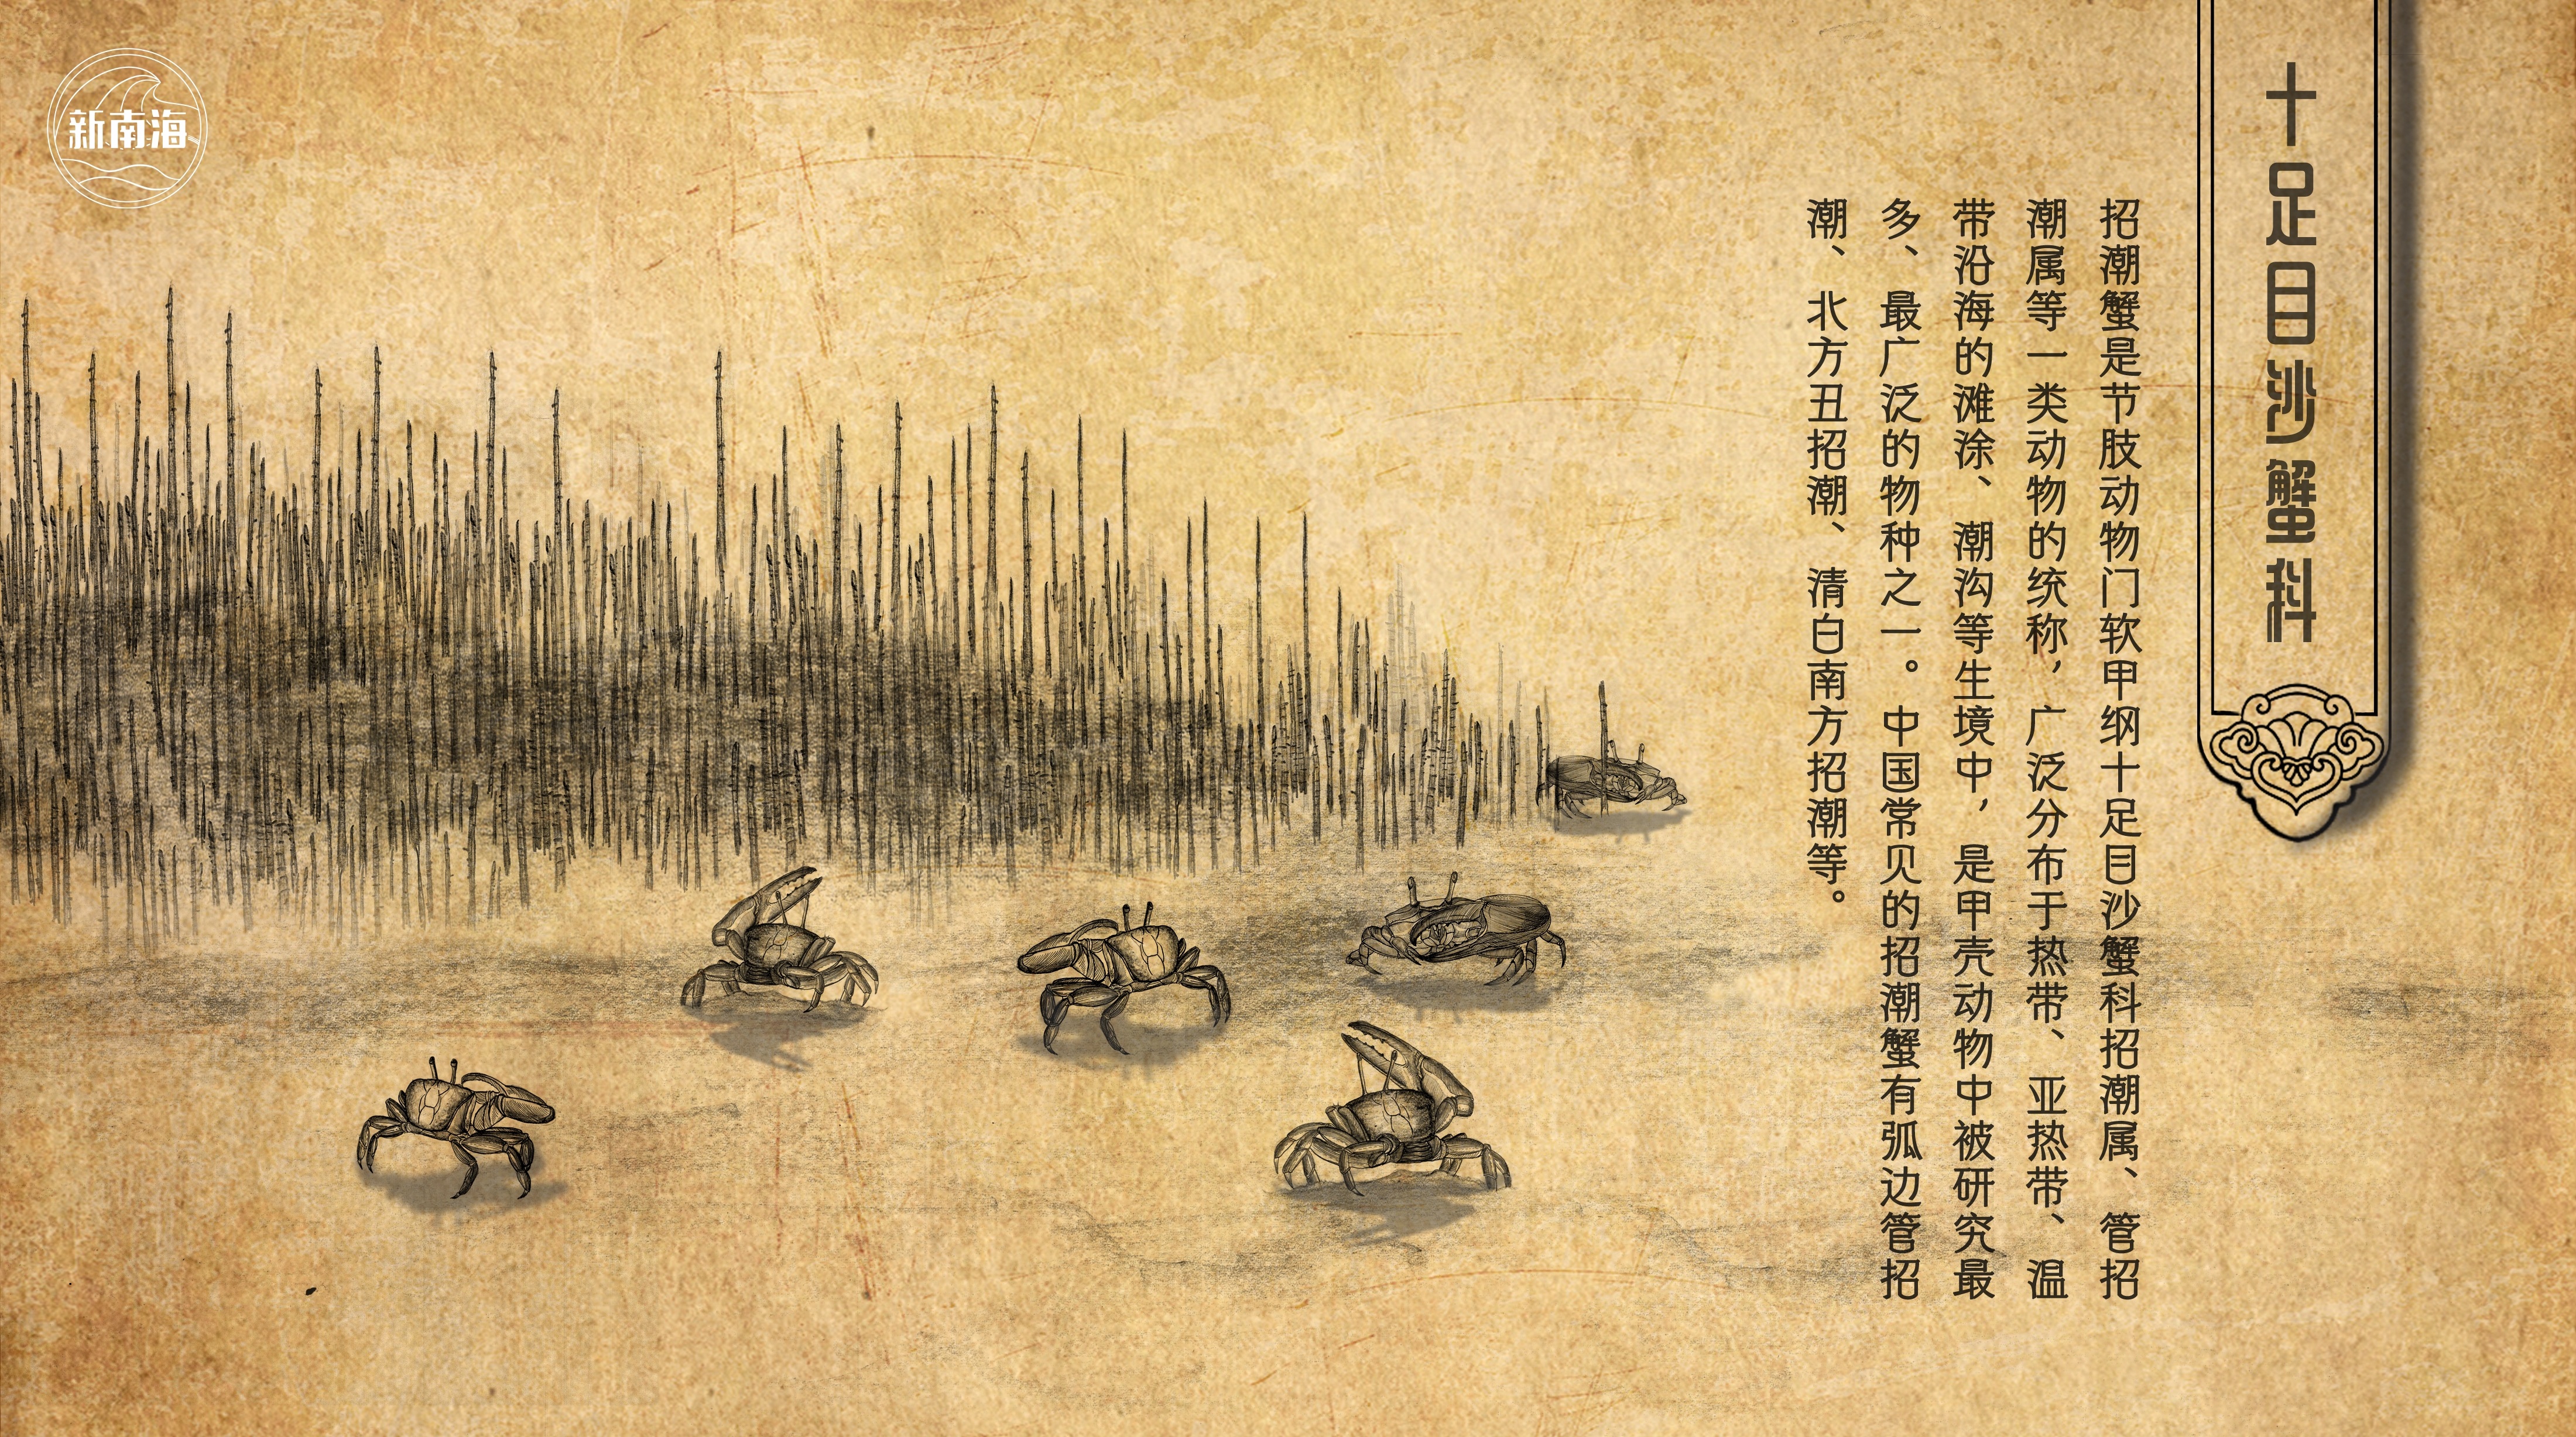 新南海
十足目沙蟹科
招潮蟹是节肢动物门软甲纲十足目沙蟹科招潮属、管招
潮属等一类动物的统称，广泛分布于热带、亚热带、温
带沿海的滩涂、潮沟等生境中，是甲壳动物中被研究最
多、最广泛的物种之一。中国常见的招潮蟹有弧边管招
潮、北方丑招潮、清白南方招潮等。